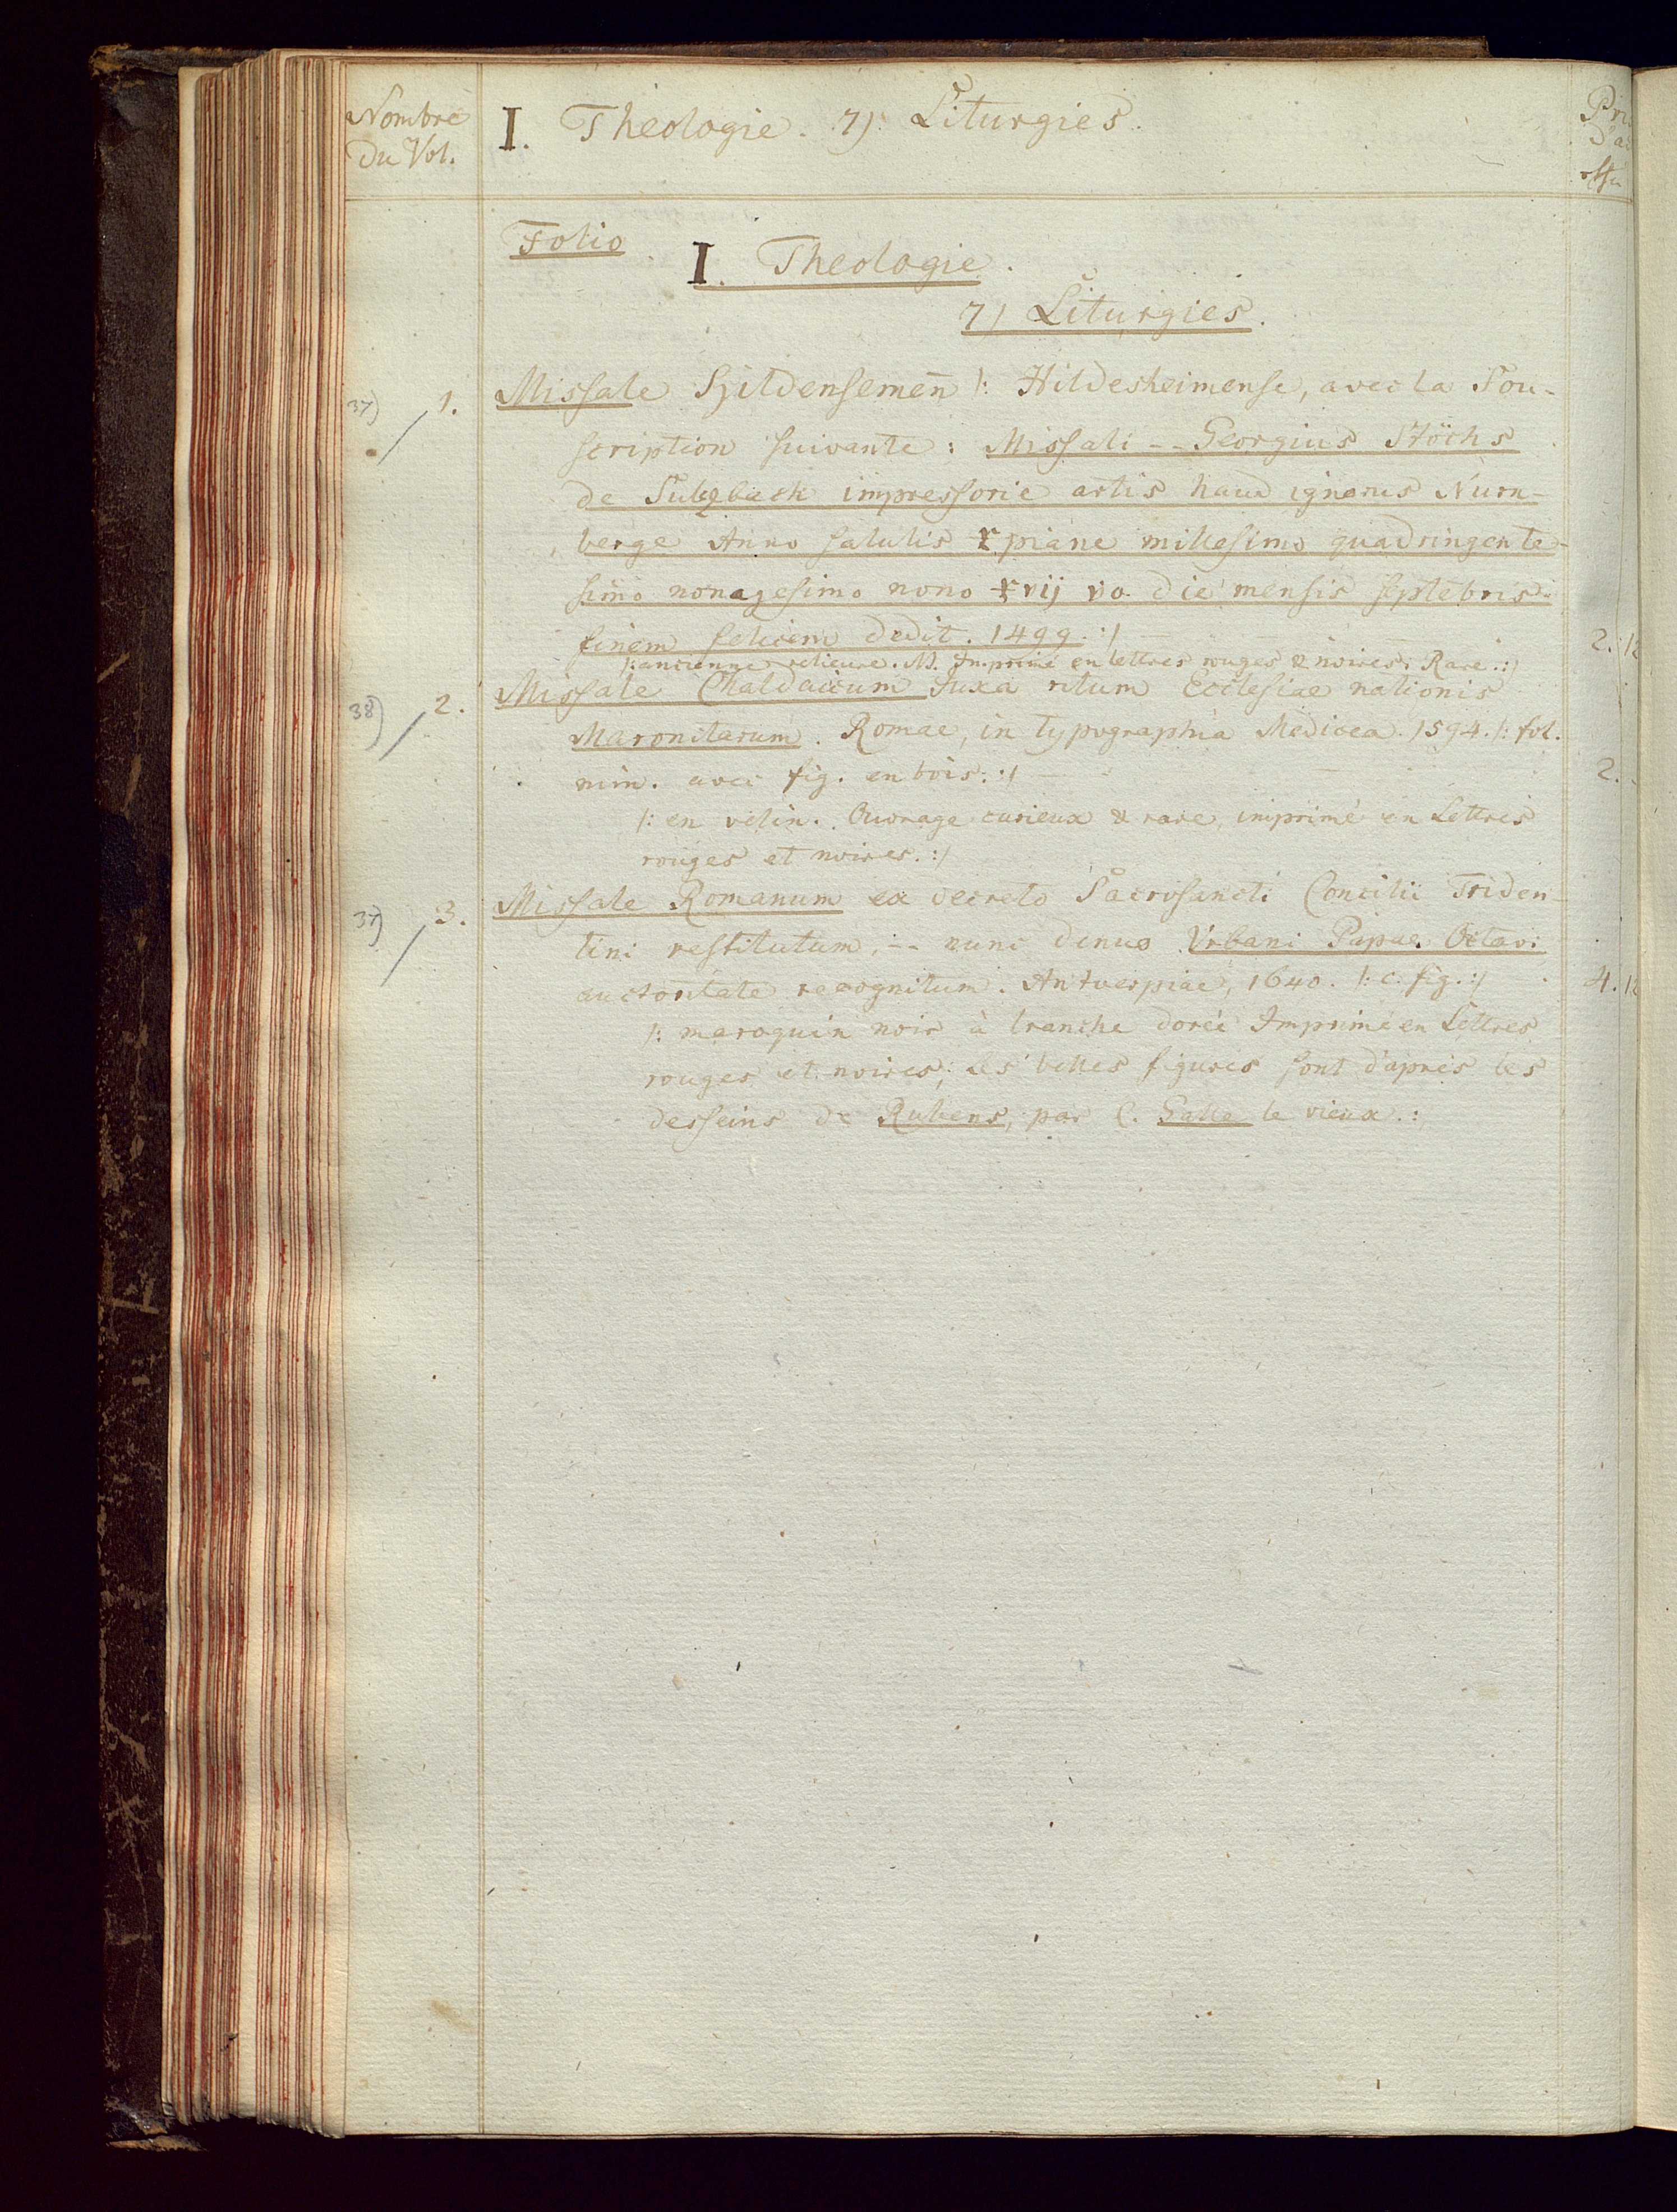 Nombre
du Vol.
I. Theologie. 7) Liturgies.
Folio
I. Theologie.
7) Liturgies.
37) 1. Missale Hildensemen̄ /: Hildesheimense, avec la Sou-
scription suivante: Missali -- Georgius Stöchs
de Sulczbach impressorie artis haud ignarus Nurn-
berge Anno salutis xpiane millesimo quadringente-
simo nonagesimo nono xvij vo. die mensis septēbris
finem felicem dedit. 1499. :/ 2. 12
/: ancienne relieure. N. Imprimé en lettres rouges & noires. Rare. :/
38) 2. Missale Chaldaicum Juxa ritum Ecclesiae nationis
Maronitarum. Romae, in typographia Medicea. 1594. /: fol.
min. avec fig. en bois. :/ 2.
/: en velin. Ouvrage curieux & rare, imprimé en Lettres
rouges et noires. :/
37) 3. Missale Romanum ex decreto Sacrosancti Concilii Triden-
tini restitutum, -- nunc denuo Vrbani Papae Octavi
auctoritate recognitum. Antverpiae, 1640. /: c. fig. :/ 4. 12
/: maroquin noir à tranche dorée Imprimé en Lettres
rouges et noires; les belles figures sont d'après les
desseins de Rubens, par C. Galle le vieux. :